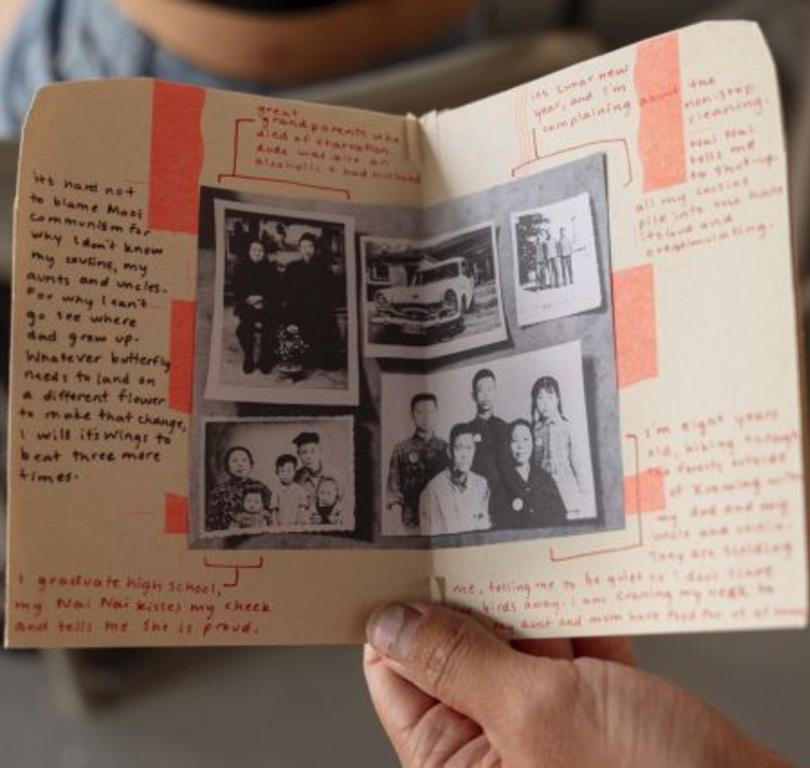 its hard not
to blame Maoi
communism for
why I don't know
my cousins, my
aunts and uncles.
For why I can't
go see where
dad grew up.
Whatever butterfly
needs to land on
a different flower
to make that change,
I will it's wings to
beat three more
times.
great
grandparents who
died of starvation.
dude was also an
alcoholic + bad husband
I graduate high school,
my Nai Nai kisses my cheek
and tells me she is proud.
its lunar new
year, and I'm
complaining about the
non-stop
cleaning.
Nai Nai
tells me
to shut-up.
all my cousins
pile into the house
its loud and
overstimulating.
I'm eight years
old, hiking through
the forests outside
of Kunming with
my dad and my
uncle and cousin.
They are scolding
me, telling me to be quiet so I don't scare
the birds away. I am craning my neck to
my aunt and mom have food for us at home